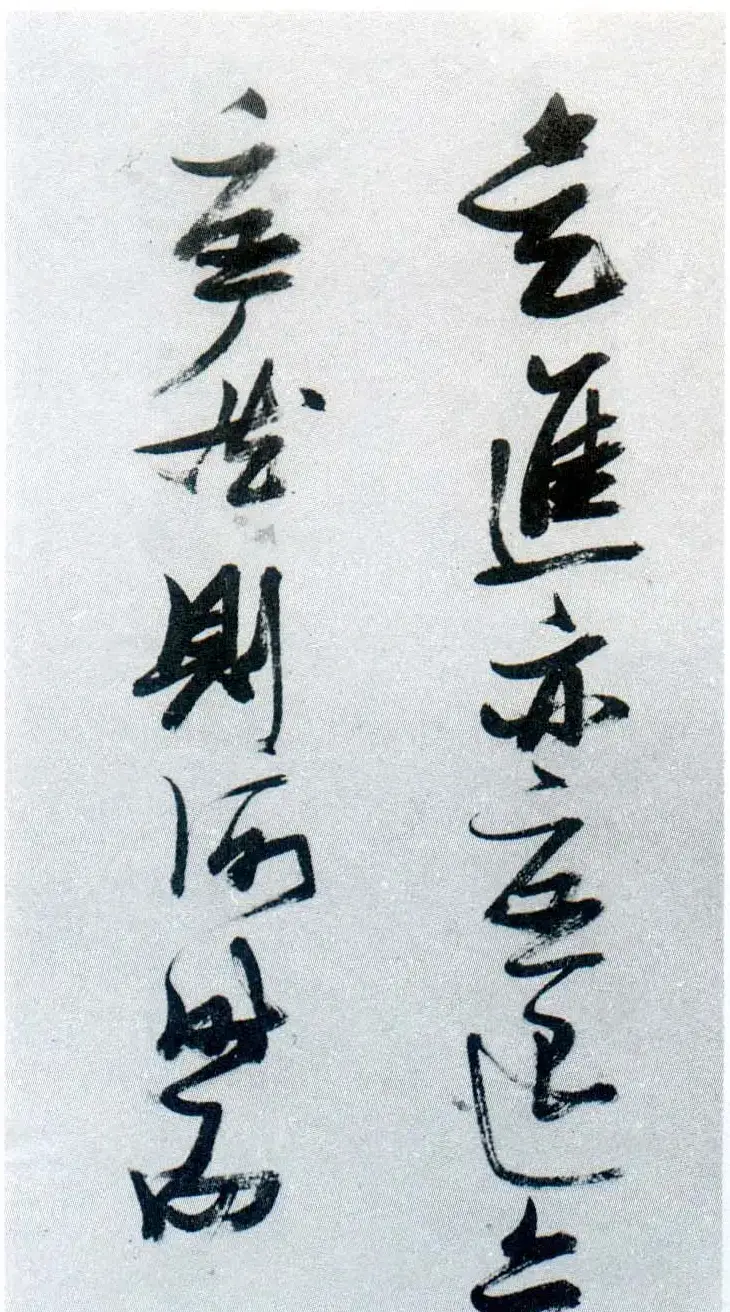 是進亦憂退亦
憂然則何時而